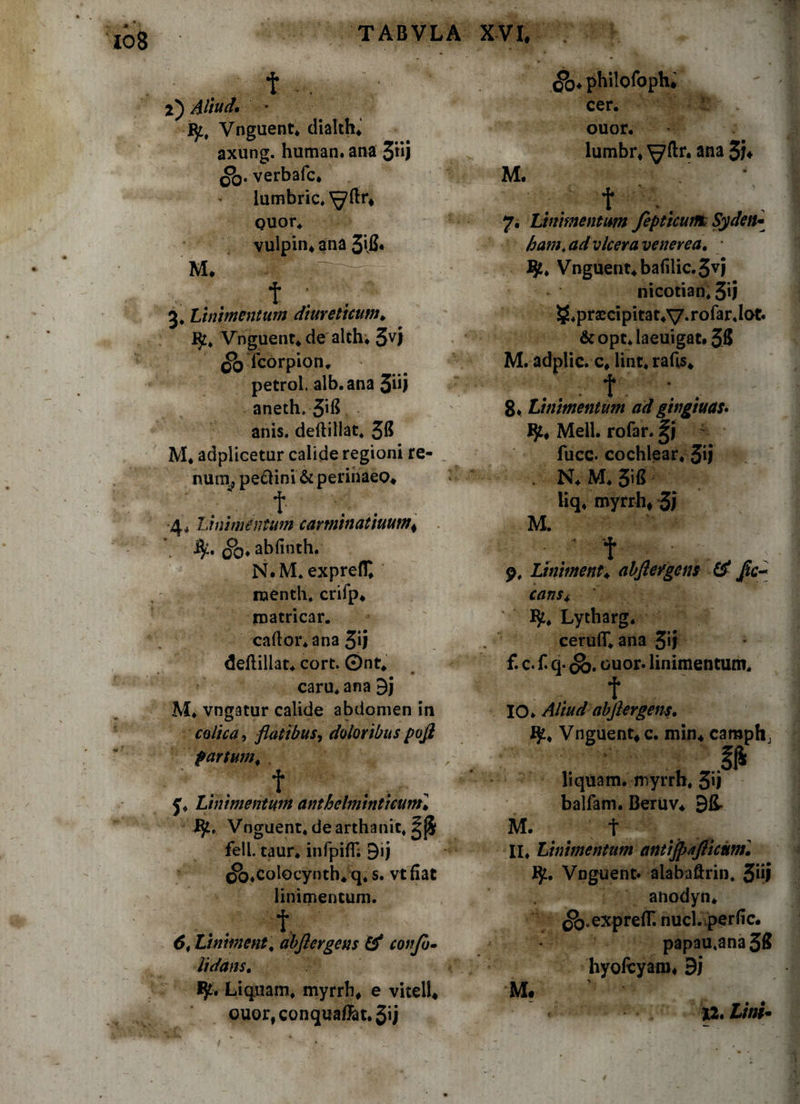 108
TABVLA XVI.
†
2) Aliud.
℞. Vnguent. dialth.
axung. human. ana ʒiij
ꝏ. verbaſc.
lumbric. 🜃ſtr.
ouor.
vulpin. ana ʒiß.
M.
†
3. Linimentum diureticum.
℞. Vnguent. de alth. ʒvj
ꝏ ſcorpion.
petrol. alb. ana ʒiij
aneth. ʒiß
anis. deſtillat. ʒß
M. adplicetur calide regioni re-
num, pectini & perinaeo.
†
4. Linimentum carminatiuum.
℞. ꝏ. abſinth.
N. M. expreſſ.
menth. criſp.
matricar.
caſtor. ana ʒij
deſtillat. cort. ⊙nt.
caru. ana ℈j
M. vngatur calide abdomen in
colica, flatibus, doloribus poſt
partum.
†
5. Linimentum anthelminticum.
℞. Vnguent. de arthanit. ℥ß
fell. taur. inſpiſſ. ℈ij
ꝏ. colocynth. q. s. vt fiat
linimentum.
†
6. Liniment. abſtergens & conſo-
lidans.
℞. Liquam. myrrh. e vitell.
ouor. conquaſſat. ʒij
ꝏ. philoſoph.
cer.
ouor.
lumbr. 🜃ſtr. ana ʒj.
M.
†
7. Linimentum ſepticum Syden-
ham. ad vlcera venerea.
℞. Vnguent. baſilic. ʒvj
nicotian. ʒij
☿. præcipitat. 🜄. roſar. lot.
& opt. laeuigat. ʒß
M. adplic. c. lint. raſis.
†
8. Linimentum ad gingiuas.
℞. Mell. roſar. ℥j
ſucc. cochlear. ʒij
N. M. ʒiß
liq. myrrh. ʒj
M.
†
9. Liniment. abſtergens & ſic-
cans.
℞. Lytharg.
ceruſſ. ana ʒij
f. c. ſ. q. ꝏ. ouor. linimentum.
†
10. Aliud abſtergens.
℞. Vnguent. c. min. camph.
℥ß
liquam. myrrh. ʒij
balſam. Beruv. ℈ß
M.
†
11. Linimentum antiſpaſticum.
℞. Vnguent. alabaſtrin. ʒiij
anodyn.
ꝏ. expreſſ. nucl. perſic.
papau. ana ʒß
hyoſcyam. ℈j
M.
12. Lini-